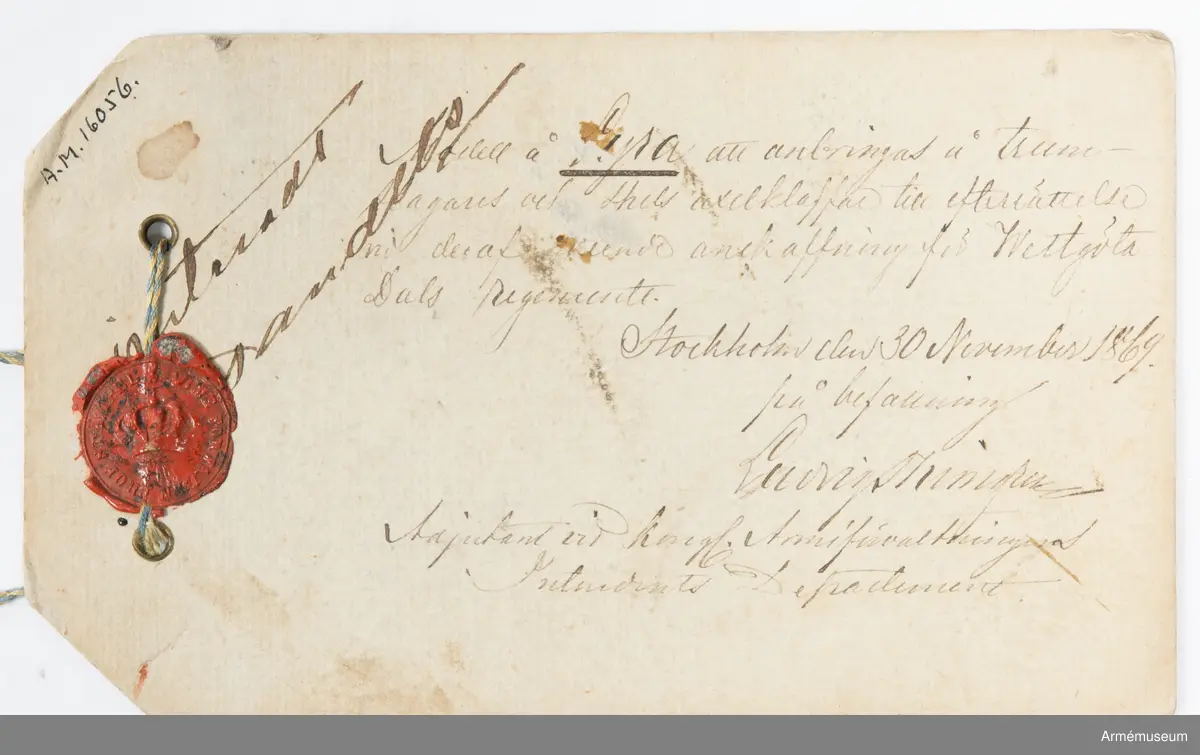 A.M. 16056.
Modell å Lyra att anbringas å trum-
slagares vid axelklaffar till efterrättelse
vid deraf anskaffning för Westgöta
Dals regemente.
Stockholm den 30 November 1869.
på befallning
Ludvig
Adjutant vid Kongl. Arméförvaltningens
Intendents Departement.
Armémuseum